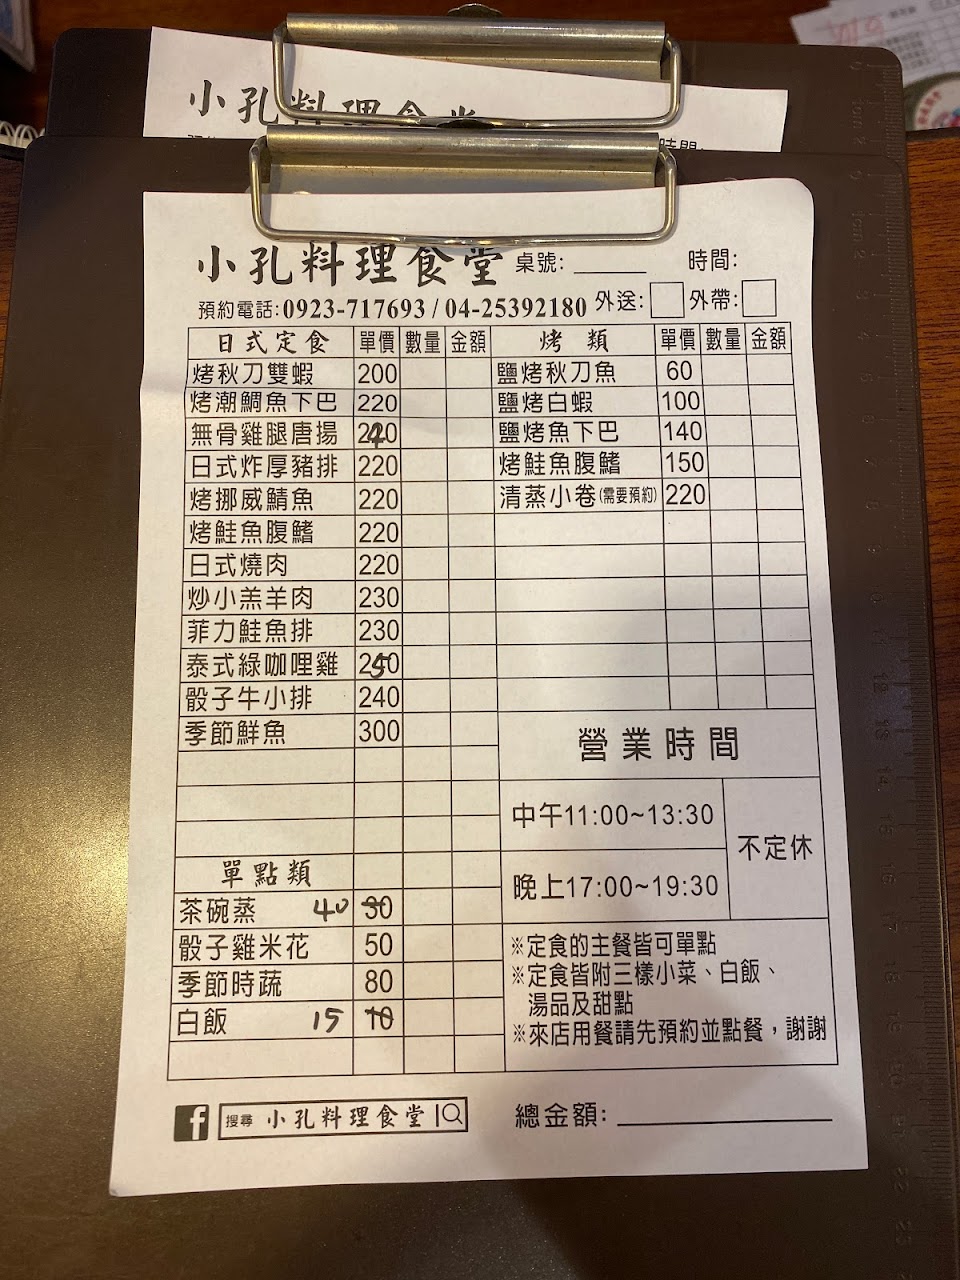 小孔料理食堂
小孔料理食堂 桌號: 時間:
預約電話:0923-717693 / 04-25392180 外送: 外帶:
日式定食 單價 數量 金額
烤秋刀雙蝦 200
烤潮鯛魚下巴 220
無骨雞腿唐揚 240
日式炸厚豬排 220
烤挪威鯖魚 220
烤鮭魚腹鰭 220
日式燒肉 220
炒小羔羊肉 230
菲力鮭魚排 230
泰式綠咖哩雞 250
骰子牛小排 240
季節鮮魚 300
單點類
茶碗蒸 40 30
骰子雞米花 50
季節時蔬 80
白飯 15 10
烤類 單價 數量 金額
鹽烤秋刀魚 60
鹽烤白蝦 100
鹽烤魚下巴 140
烤鮭魚腹鰭 150
清蒸小卷(需要預約) 220
營業時間
中午11:00~13:30
晚上17:00~19:30
不定休
※定食的主餐皆可單點
※定食皆附三樣小菜、白飯、
湯品及甜點
※來店用餐請先預約並點餐，謝謝
f 搜尋 小孔料理食堂
總金額: